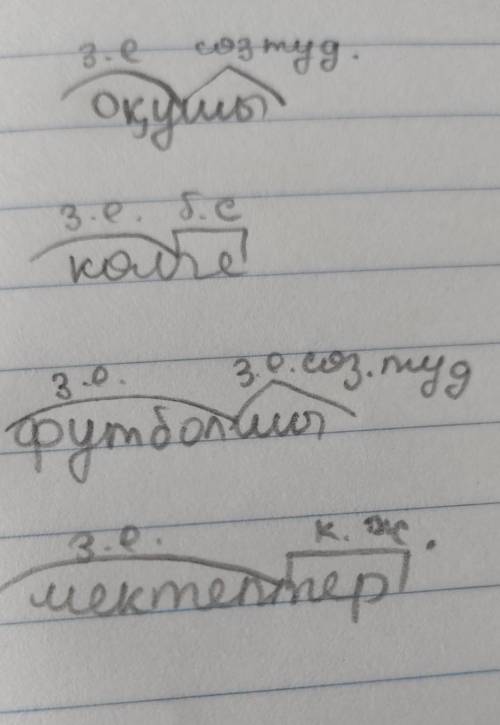 з.е сөз туд.
оқушы
з.е. б.с
көлге
з.е. з.е.сөз.туд
футболшы
з.е. к.ж.
мектептер